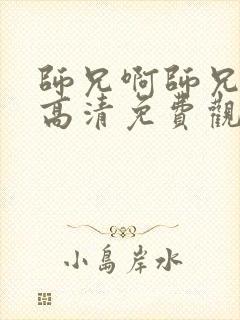 師兄啊師兄
高清免費觀
小島岸水